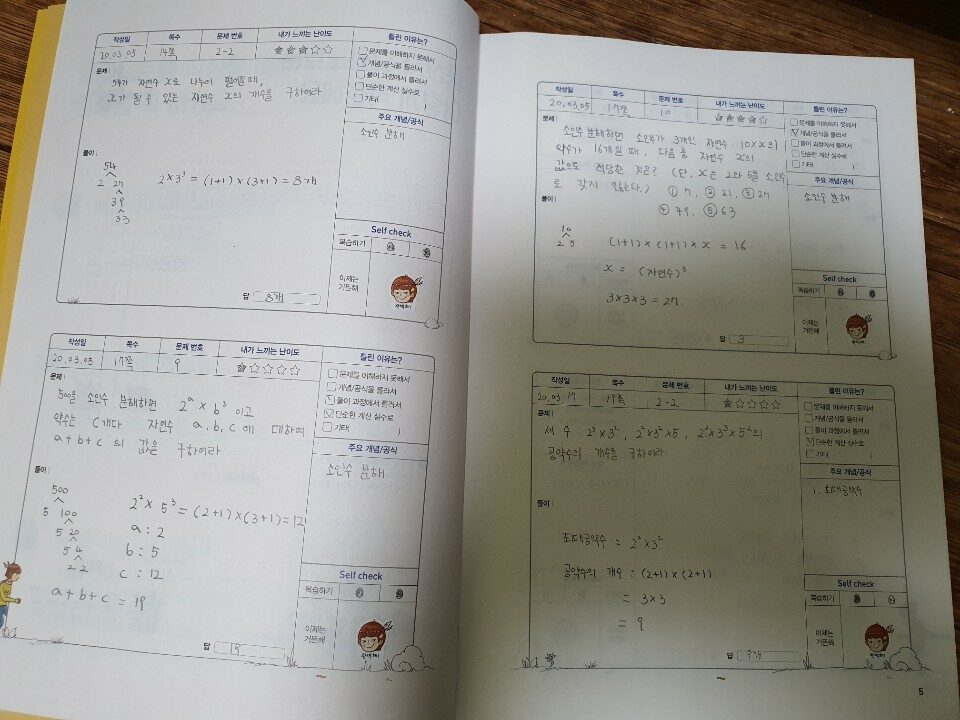 작성일 쪽수 문제 번호 내가 느끼는 난이도 틀린 이유는?
20.03.05 14쪽 2-2 ★★★☆☆
문제를 이해하지 못해서
개념/공식을 몰라서
풀이 과정에서 틀려서
단순한 계산 실수로
기타( )
문제:
54가 자연수 x로 나누어 떨어질 때,
x가 될 수 있는 자연수 x의 개수를 구하여라
주요 개념/공식
소인수 분해
풀이:
54
2 27
3 9
3 3
2×3³ = (1+1)×(3+1) = 8개
Self check
복습하기
이제는 거뜬해
답 8개
작성일 쪽수 문제 번호 내가 느끼는 난이도 틀린 이유는?
20.03.05 17쪽 9 ★☆☆☆☆
문제를 이해하지 못해서
개념/공식을 몰라서
풀이 과정에서 틀려서
단순한 계산 실수로
기타( )
문제:
500을 소인수 분해하면 2ᵃ×b³ 이고
약수는 C개다 자연수 a, b, c에 대하여
a+b+c 의 값을 구하여라
주요 개념/공식
소인수 분해
풀이:
500
5 100
5 20
5 4
2 2
2²×5³ = (2+1)×(3+1) = 12
a : 2
b : 5
c : 12
a+b+c = 19
Self check
복습하기
이제는 거뜬해
답 19
작성일 쪽수 문제 번호 내가 느끼는 난이도 틀린 이유는?
20.03.05 17쪽 10 ★★★★☆
문제를 이해하지 못해서
개념/공식을 몰라서
풀이 과정에서 틀려서
단순한 계산 실수로
기타( )
문제:
소인수 분해하면 소인수가 3개인 자연수. 10×x의
약수가 16개일 때, 다음 중 자연수 x의
값으로 적당한 것은? (단, x은 2와 5를 소인수
로 갖지 않는다.) ① 7, ② 21, ③ 27
④ 49, ⑤ 63
주요 개념/공식
소인수 분해
풀이:
10
2 5
(1+1)×(1+1)×x = 16
x = (자연수)³
3×3×3 = 27.
Self check
복습하기
이제는 거뜬해
답 3
작성일 쪽수 문제 번호 내가 느끼는 난이도 틀린 이유는?
20.03.17 19쪽 2-2 ★☆☆☆☆
문제를 이해하지 못해서
개념/공식을 몰라서
풀이 과정에서 틀려서
단순한 계산 실수로
기타( )
문제:
세 수 2³×3², 2²×3²×5, 2²×3³×5²의
공약수의 개수를 구하여라.
주요 개념/공식
1. 최대공약수
풀이:
최대공약수 = 2²×3²
공약수의 개수 : (2+1)×(2+1)
= 3×3
= 9
Self check
복습하기
이제는 거뜬해
답 9개
5